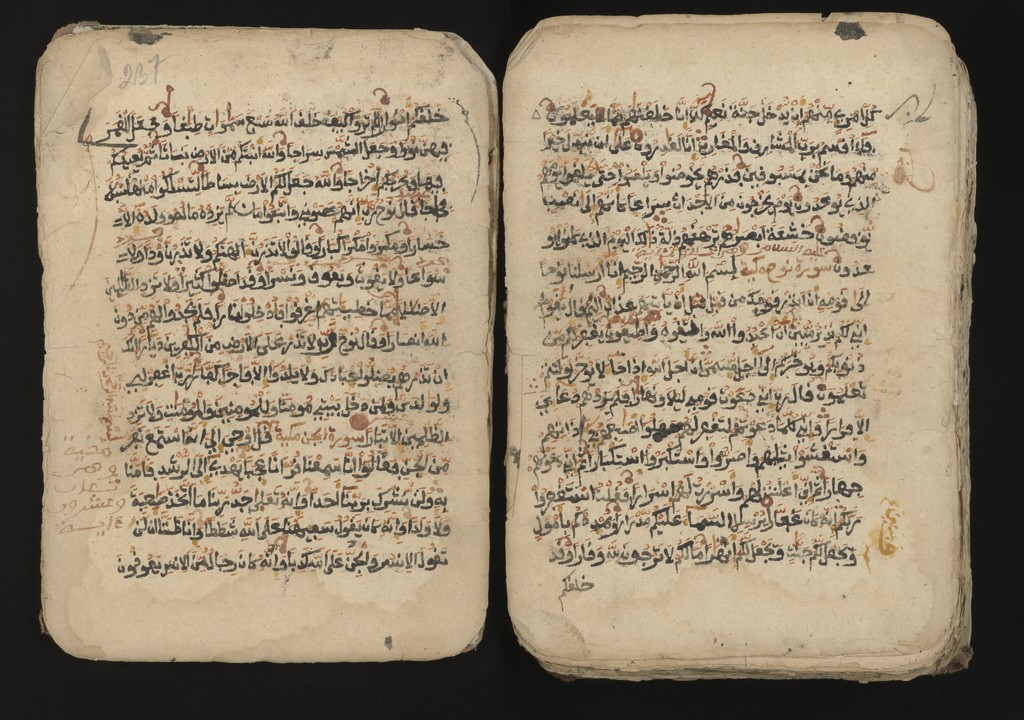 كل امرئ منهم ان يدخل جنة نعيم كلا انا خلقنهم مما يعلمون
فلا اقسم برب المشرق والمغرب انا لقدرون على ان نبدل خيرا
منهم وما نحن بمسبوقين فذرهم يخوضوا ويلعبوا حتى يلقوا يومهم
الذي يوعدون يوم يخرجون من الاجداث سراعا كانهم الى نصب
يوفضون خشعة ابصرهم ترهقهم ذلة ذلك اليوم الذي كانوا يو
عدون سورة نوح مكية بسم الله الرحمن الرحيم انا ارسلنا نوحا
الى قومه ان انذر قومك من قبل ان ياتيهم عذاب اليم قال يقوم
اني لكم نذير مبين ان اعبدوا الله واتقوه واطيعون يغفر لكم من
ذنوبكم ويوخركم الى اجل مسمى ان اجل الله اذا جا لا يوخر لو كنتم
تعلمون قال رب اني دعوت قومي ليلا ونهارا فلم يزدهم دعاي
الا فرارا واني كلما دعوتهم لتغفر لهم جعلوا اصبعهم في اذانهم
واستغشوا ثيابهم واصروا واستكبروا استكبارا ثم اني دعوتهم
جهارا ثم اني اعلنت لهم واسررت لهم اسرارا فقلت استغفروا
ربكم انه كان غفارا يرسل السما عليكم مدرارا ويمددكم باموال
ويجعل لكم جنت ويجعل لكم انهرا ما لكم لا ترجون لله وقارا وقد
خلقكم
237
خلقكم اطوارا الم تروا كيف خلق الله سبع سموات طباقا وجعل القمر
فيهن نورا وجعل الشمس سراجا والله انبتكم من الارض نباتا ثم يعيدكم
فيها ويخرجكم اخراجا والله جعل لكم الارض بساطا لتسلكوا منها سبلا
فجاجا قال نوح رب انهم عصوني واتبعوا من لم يزده ماله وولده الا
خسارا ومكروا مكرا كبارا وقالوا لا تذرن الهتكم ولا تذرن ودا ولا
سواعا ولا يغوث ويعوق ونسرا وقد اضلوا كثيرا ولا تزد الظلمين
الا ضللا مما خطيتهم اغرقوا فادخلوا نارا فلم يجدوا لهم من دون
الله انصارا وقال نوح رب لا تذر على الارض من الكفرين ديارا انك
ان تذرهم يضلوا عبادك ولا يلدوا الا فاجرا كفارا رب اغفر لي
ولولدي ولمن دخل بيتي مومنا وللمومنين والمومنت ولا تزد
الظلمين الا تبارا سورة الجن مكية قل اوحي الي انه استمع نفر
من الجن فقالوا انا سمعنا قرانا عجبا يهدي الى الرشد فامنا
به ولن نشرك بربنا احدا وانه تعلى جد ربنا ما اتخذ صحبة
ولا ولدا وانه كان يقول سفيهنا على الله شططا وانا ظننا ان لن
تقول الانس والجن على الله كذبا وانه كان رجال من الانس يعوذون